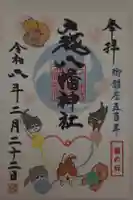 奉拝
御鎮座五百年
戸越八幡神社
令和八年二月二十二日